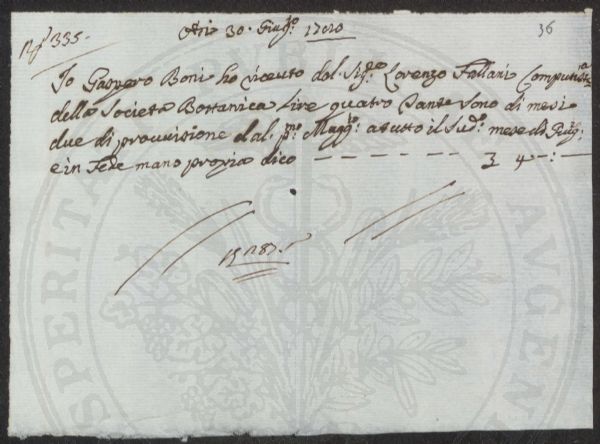 36
335.
Adì 30. Giug.o 17
Io Gaspero Boni ho riceuto dal Sig.re Lorenzo Fallani Computista
della Societa Bottanica lire quattro tante sono di mesi
due di prouuisione dal p.mo Magg.o a tutto il Sud.o mese di Giug.o
e in Fede mano propria dico — — — — — — — 4 —:—